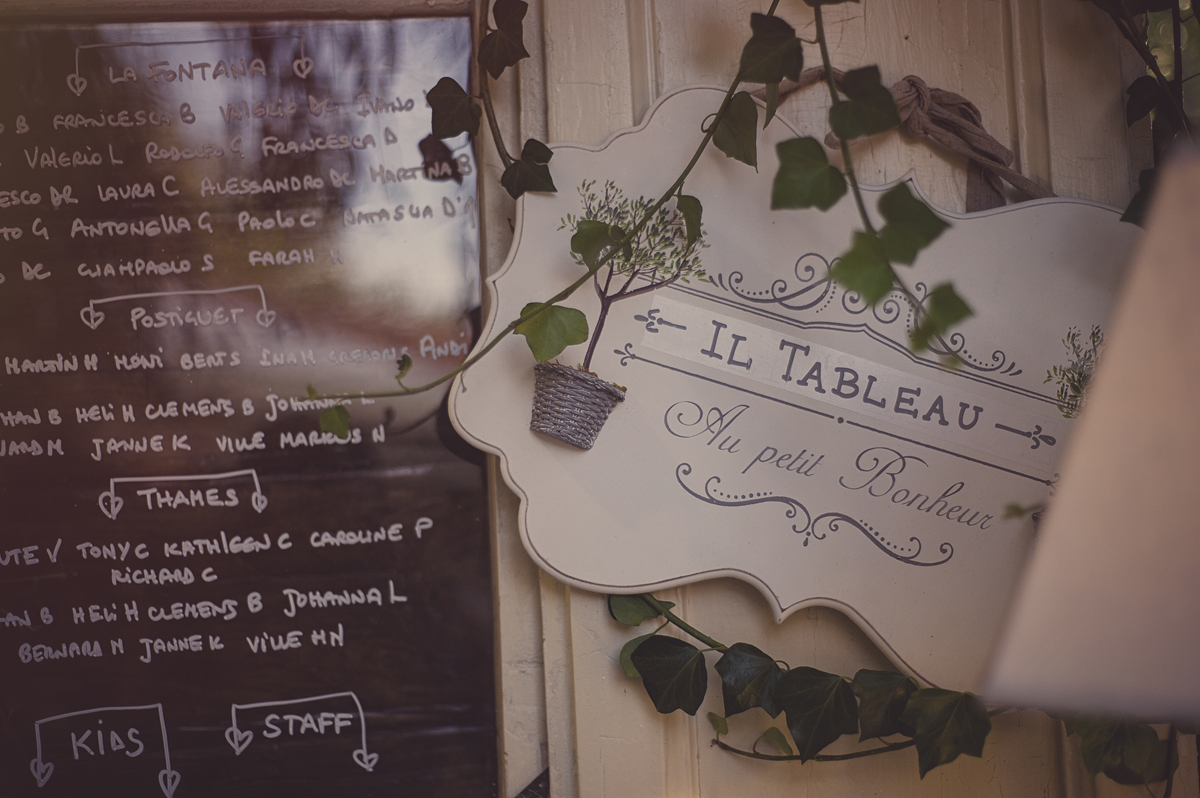 LA FONTANA
B FRANCESCA B VALERIO DC IVANO
VALERIO L RODOLFO G FRANCESCA D
ESCO DR LAURA C ALESSANDRO DC MARTINA B
TO G ANTONELLA G PAOLO C NATASCIA D'
DC GIAMPAOLO S FARAH
POSTIGUET
MARTIN H BERTS
HAN B HELi H CLEMENS B JOHANNA L
M JANNE K VILLE MARKUS N
THAMES
UTE V TONY C KATHLEEN C CAROLINE P
RICHARD C
AN B HELi H CLEMENS B JOHANNA L
BERNARD M JANNE K VILLE HN
KiDS
STAFF
IL TABLEAU
Au petit Bonheur